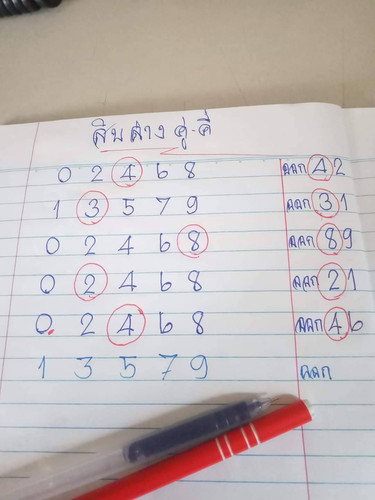 สิบล่าง คู่-คี่
0 2 4 6 8 ออก 42
1 3 5 7 9 ออก 31
0 2 4 6 8 ออก 89
0 2 4 6 8 ออก 21
0 2 4 6 8 ออก 46
1 3 5 7 9 ออก